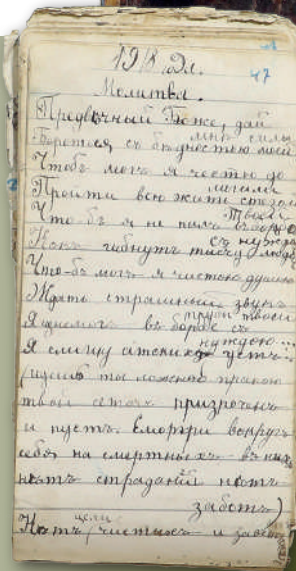 191 г.
47
Молитва.
Предвѣчный Боже, дай
мнѣ силы
Бороться съ бѣдностью моей
Чтобъ могъ я честно до
могилы
Пройти всю жизнь стезей
Твоей
Что-бъ я не палъ въ борьбѣ
съ нуждой
Какъ гибнутъ тысячи людей
Что-бъ могъ я чистою душою
Ждать страшный звукъ
трубы твоей
Я въ борьбѣ съ
нуждою...
Я слышу устъ
ты ложно
твой призраченъ
и пустъ. Смотри вокругъ
себя на смертныхъ въ нихъ
нѣтъ страданій нѣтъ
заботъ)
Нѣтъ цели чистыхъ и